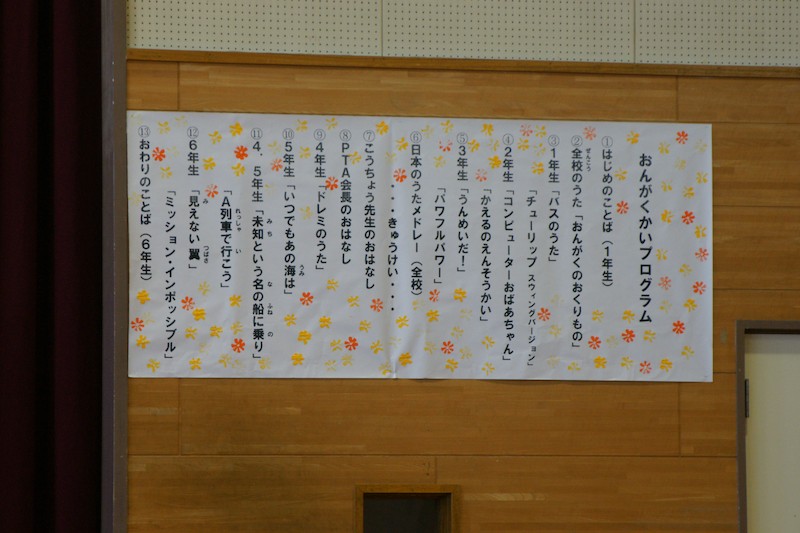 おんがくかいプログラム
①はじめのことば（1年生）
②全校のうた「おんがくのおくりもの」
ぜんこう
③1年生「バスのうた」
「チューリップ スウィングバージョン」
④2年生「コンピューターおばあちゃん」
「かえるのえんそうかい」
⑤3年生「うんめいだ！」
「パワフルパワー」
⑥日本のうたメドレー（全校）
・・・・きゅうけい・・・・
⑦こうちょう先生のおはなし
⑧PTA会長のおはなし
⑨4年生「ドレミのうた」
⑩5年生「いつでもあの海は」
うみ
⑪4．5年生「未知という名の船に乗り」
みち な ふね の
「A列車で行こう」
れっしゃ い
⑫6年生「見えない翼」
み つばさ
「ミッション・インポッシブル」
⑬おわりのことば（6年生）